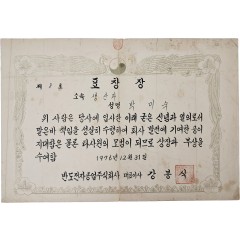 제 호
표창장
소속 생산부
성명 박
위 사람은 당사에 입사한 아래 굳은 신념과 열의로서
맡은바 책임을 성실히 수행하여 회사 발전에 기여한 공이
지대함은 물론 타사원의 모범이 되므로 상장과 부상을
수여함
1976년 12월 31일
반도전자공업주식회사 대표이사 강봉식